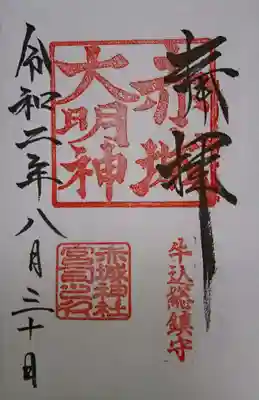 奉拝
牛込総鎮守
赤城
大明神
赤城神社
宮司之印
令和二年八月三十日